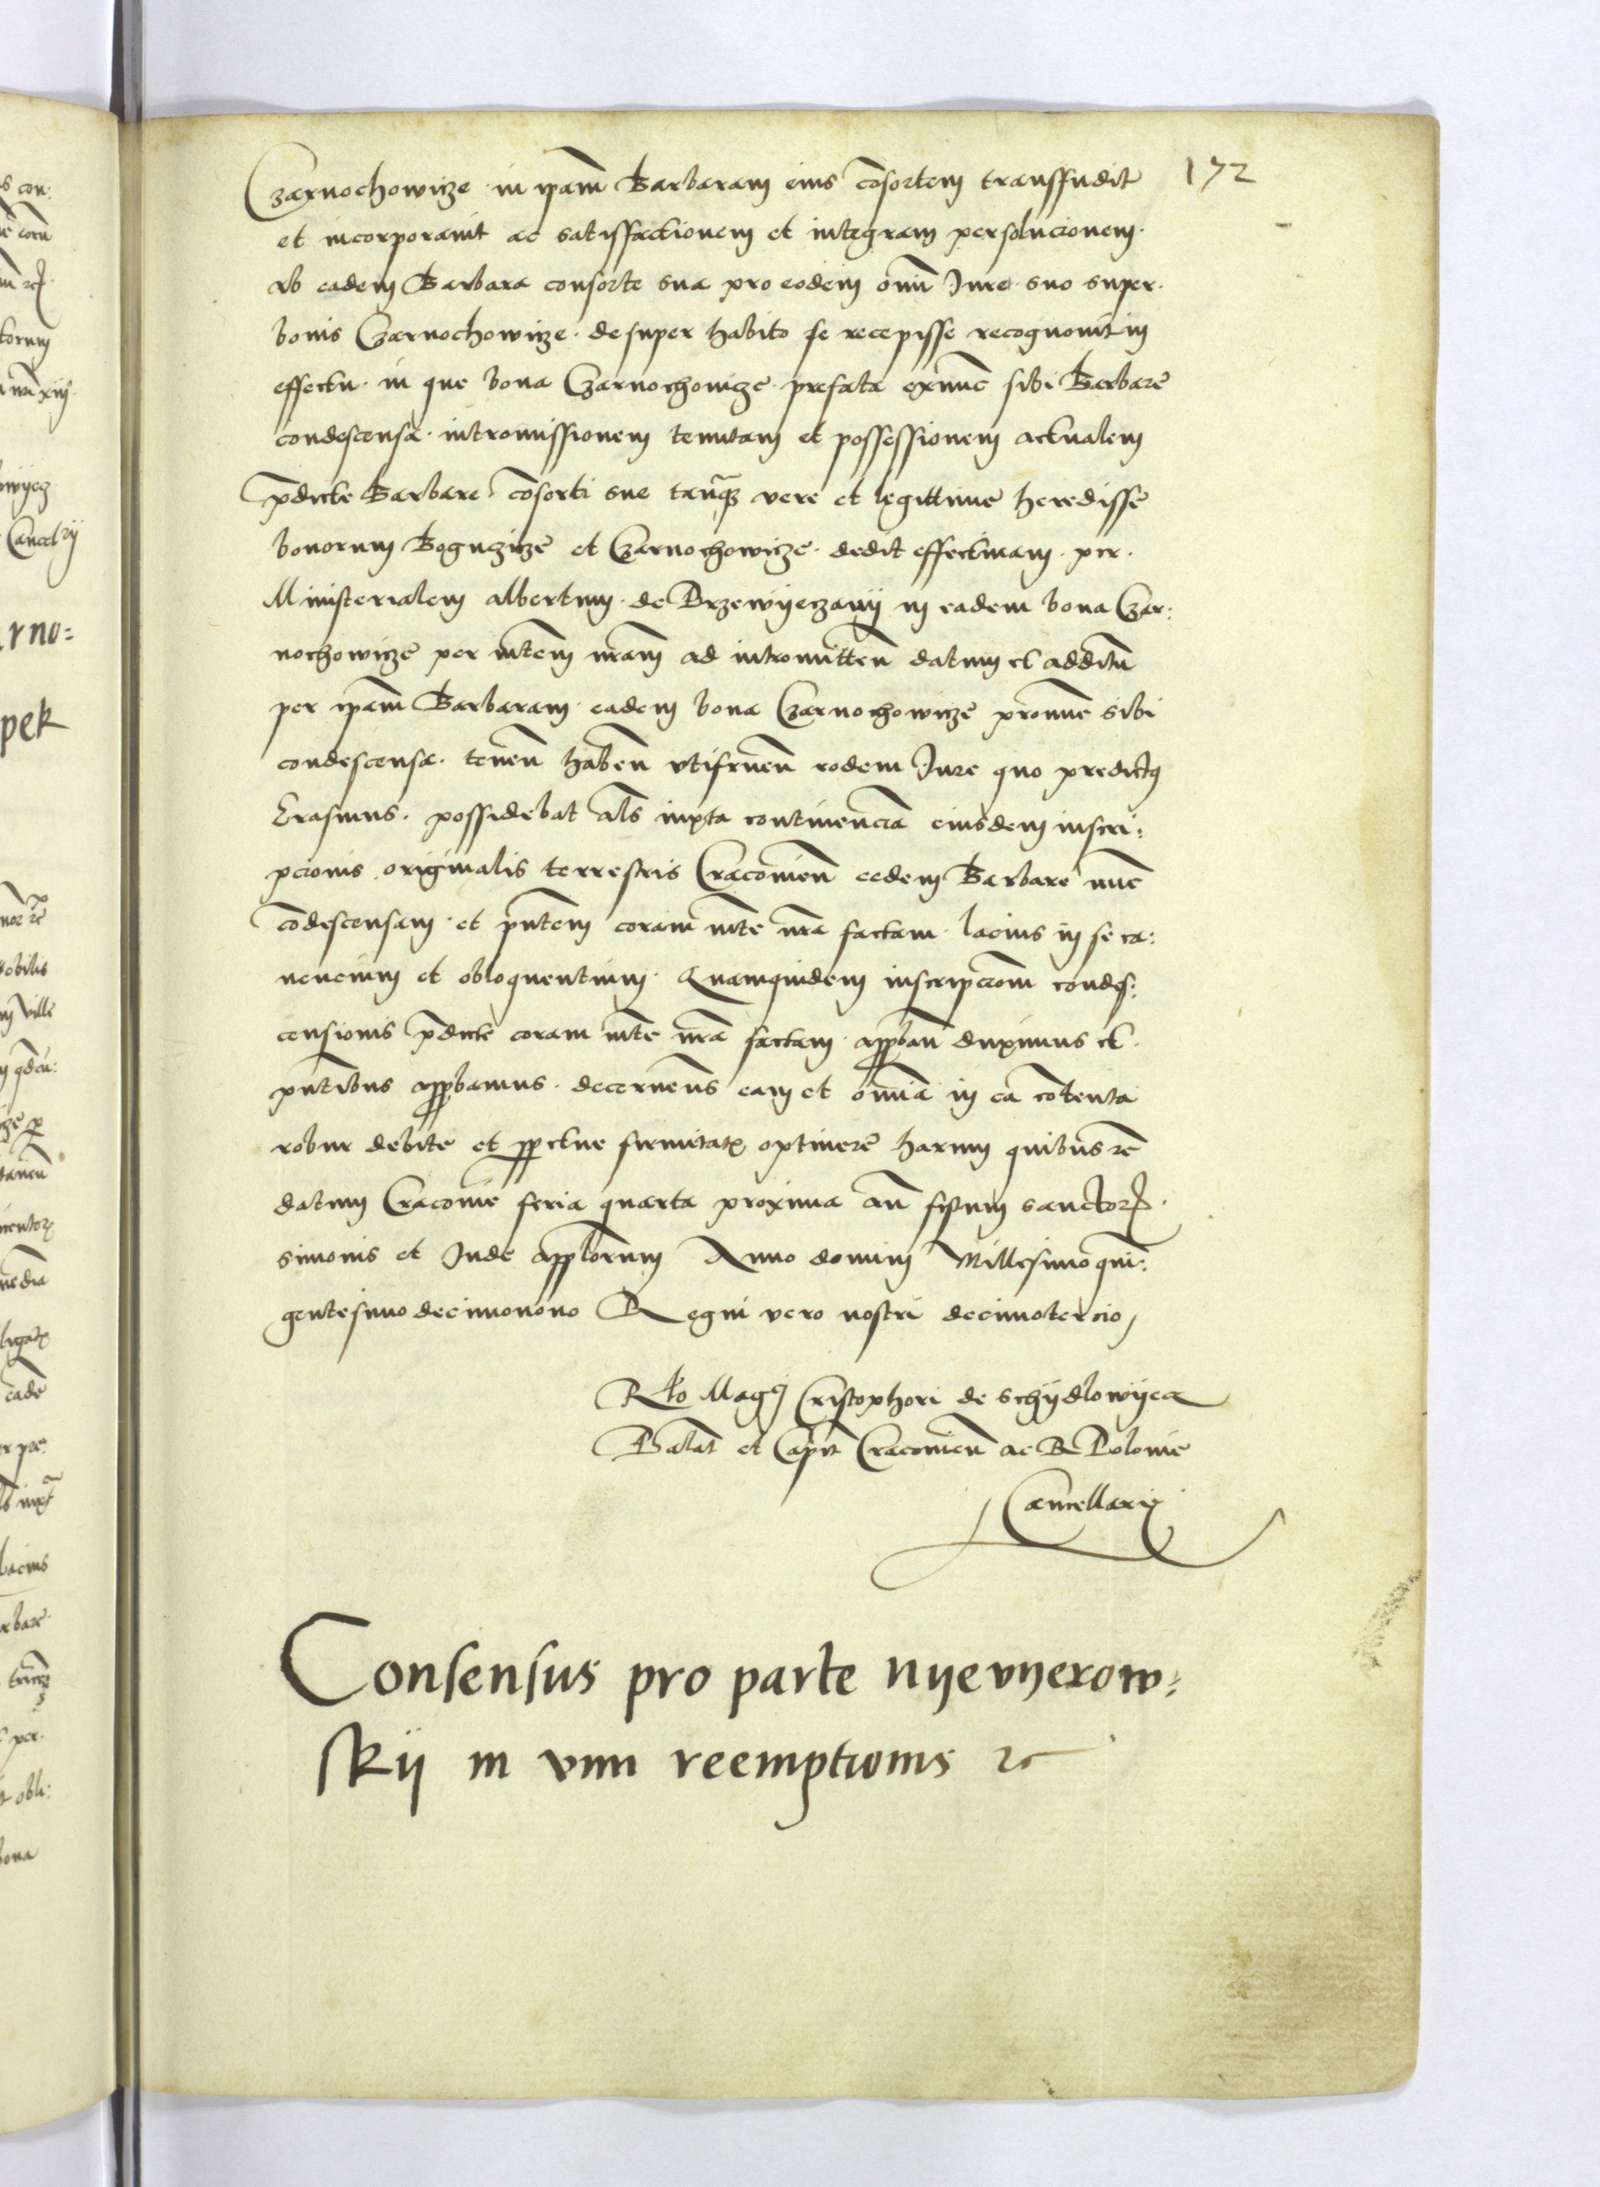 172
Czarnochowicze in ip̄am Barbaram eius cōsortem transfudit
et incorporauit ac satisfactionem et integram persolucionem
ab eadem Barbara consorte sua pro eodem om̄i Iure suo super
bonis Czarnochowicze desuper habito se recepisse recognouit in
effectu in que bona Czarnochouicze prefata exnūc sibi Barbare
condescensa intromissionem tenutam et possessionem actualem
p̄dicte Barbare cōsorti sue tanq̄ vere et legittime heredisse
bonorum Boguczicze et Czarnochowicze dedit effectiuam per
Ministerialem albertum de Brzewyeczany in eadem bona Czar:
nochowicze per mtem nr̄am ad intromitten̄ datum et additū
per ip̄am Barbaram eadem bona Czarnochowicze pronūc sibi
condescensa tenen̄ haben̄ vtifruen̄ eodem Iure quo predictus
Erasmus possidebat al̄s iuxta continencia eiusdem inscri:
pcionis originalis terrestris Cracouien̄ eedem Barbare nūc
cōdescensam et p̄ntem coram mte nr̄a factam lacius in se ca:
nencium et obloquentium Quamquidem inscripcionē condes:
censionis p̄dicte coram mte nr̄a factam app̄ban̄ duximus et
p̄ntibus app̄bamus decernen̄s eam et om̄ia in ea cōtenta
robur debite et pp̄etue firmitatꝭ optinere harum quibus rē
datum Cracouie feria quarta proxima an̄ festum sanctorꝝ
simonis et Iude app̄lorum Anno domini Millesimo quin:
gentesimo decimonono Regni vero nostri decimotercio
Rl̄o Magci Cristophori de Schydlowyecz
Palat̄ et Capit̄ Cracouien̄ ac R Polonie
Cancellarij
Consensus pro parte nyevyerow:
skij in vim reemptionis ꝛc